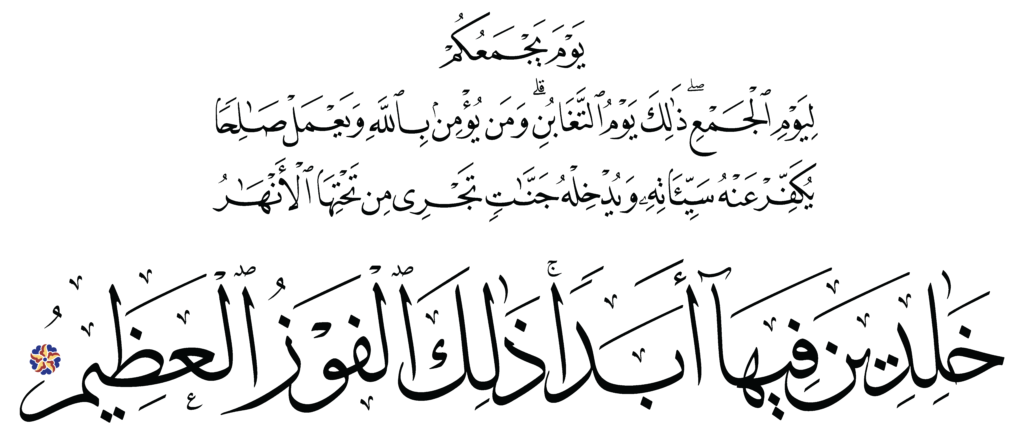 يَوْمَ يَجْمَعُكُمْ
لِيَوْمِ ٱلْجَمْعِ ۖ ذَٰلِكَ يَوْمُ ٱلتَّغَابُنِ ۗ وَمَن يُؤْمِنۢ بِٱللَّهِ وَيَعْمَلْ صَـٰلِحًا
يُكَفِّرْ عَنْهُ سَيِّـَٔاتِهِۦ وَيُدْخِلْهُ جَنَّـٰتٍ تَجْرِى مِن تَحْتِهَا ٱلْأَنْهَـٰرُ
خَـٰلِدِينَ فِيهَآ أَبَدًا ۚ ذَٰلِكَ ٱلْفَوْزُ ٱلْعَظِيمُ